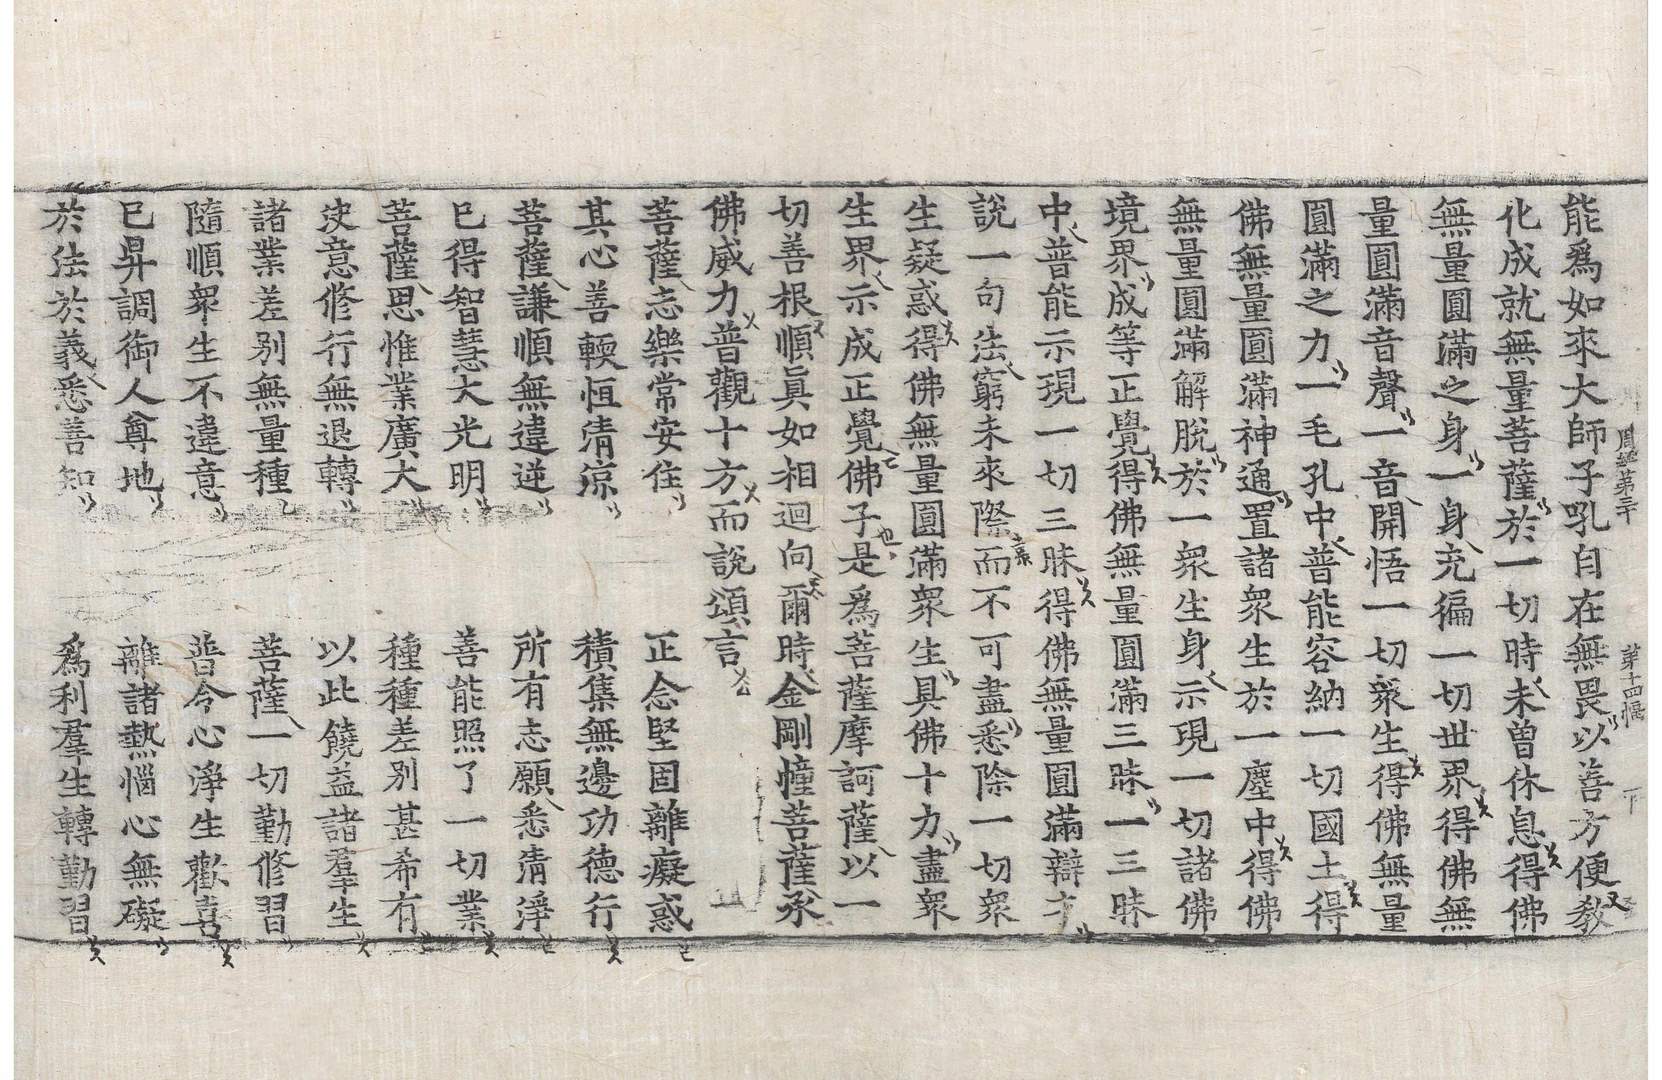 周經第三十 第十四幅 下
能爲如來大師子吼自在無畏以善方便教
化成就無量菩薩於一切時未曾休息得佛
無量圓滿之身一身充徧一切世界得佛無
量圓滿音聲一音開悟一切衆生得佛無量
圓滿之力一毛孔中普能容納一切國土得
佛無量圓滿神通置諸衆生於一塵中得佛
無量圓滿解脫於一衆生身示現一切諸佛
境界成等正覺得佛無量圓滿三昧一三昧
中普能示現一切三昧得佛無量圓滿辯才
說一句法窮未來際而不可盡悉除一切衆
生疑惑得佛無量圓滿衆生具佛十力盡衆
生界示成正覺佛子是爲菩薩摩訶薩以一
切善根順眞如相迴向爾時金剛幢菩薩承
佛威力普觀十方而說頌言
菩薩志樂常安住 正念堅固離癡惑
其心善輭恒清涼 積集無邊功德行
菩薩謙順無違逆 所有志願悉清淨
已得智慧大光明 善能照了一切業
菩薩思惟業廣大 種種差別甚希有
决意修行無退轉 以此饒益諸羣生
諸業差別無量種 菩薩一切勤修習
隨順衆生不違意 普令心淨生歡喜
已昇調御人尊地 離諸熱惱心無礙
於法於義悉善知 爲利羣生轉勤習